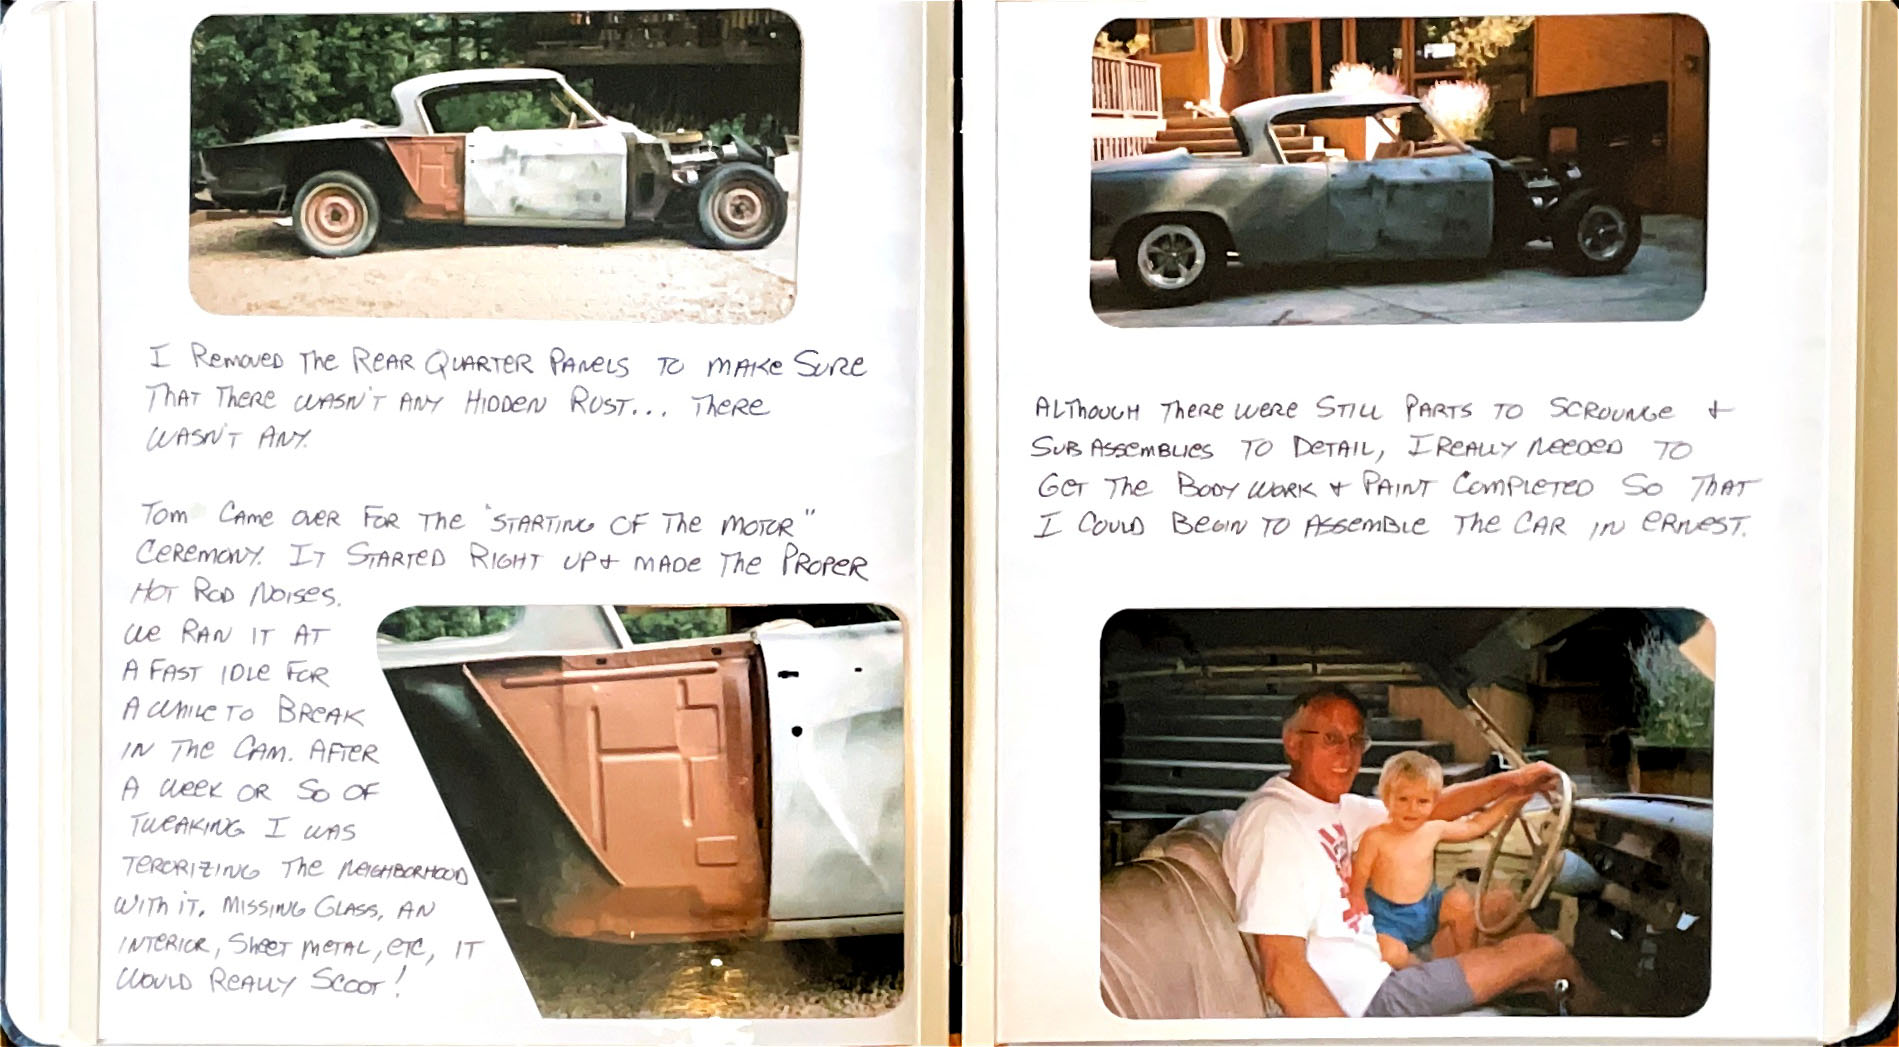 I REMOVED THE REAR QUARTER PANELS TO MAKE SURE
THAT THERE WASN'T ANY HIDDEN RUST... THERE
WASN'T ANY.
TOM CAME OVER FOR THE "STARTING OF THE MOTOR"
CEREMONY. IT STARTED RIGHT UP + MADE THE PROPER
HOT ROD NOISES.
WE RAN IT AT
A FAST IDLE FOR
A WHILE TO BREAK
IN THE CAM. AFTER
A WEEK OR SO OF
TWEAKING I WAS
TERORIZING THE NEIGHBORHOOD
WITH IT. MISSING GLASS, AN
INTERIOR, SHEET METAL, ETC, IT
WOULD REALLY SCOOT!
ALTHOUGH THERE WERE STILL PARTS TO SCROUNGE +
SUB ASSEMBLIES TO DETAIL, I REALLY NEEDED TO
GET THE BODY WORK + PAINT COMPLETED SO THAT
I COULD BEGIN TO ASSEMBLE THE CAR IN ERNEST.